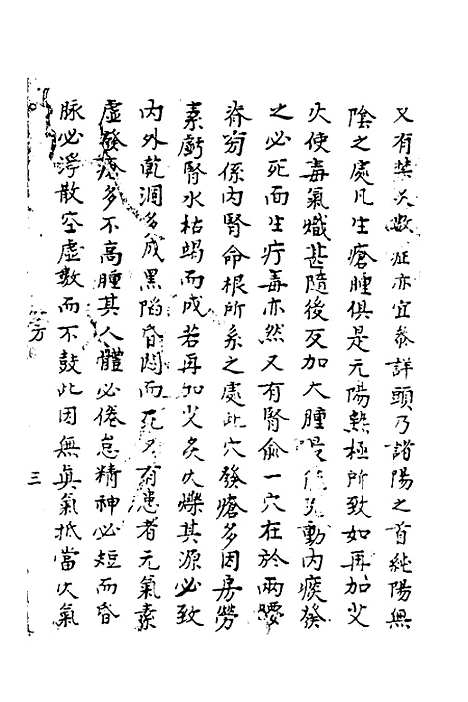 又有禁灸數症亦宜叅詳頭乃諸陽之首純陽無
陰之處凡生瘡腫俱是元陽熱極所致如再加灸
火使毒氣熾甚隨後反加大腫最動內痰發
之必死而生疔毒亦然又有腎俞一穴在於兩腰
脊旁係內腎命根所系之處此穴發瘡多因房勞
素虧腎水枯竭而成若再加灸火爍其源必致
內外乾涸多成黑陷昏悶而死又有患者元氣素
虛發瘡多不高腫其人體必倦怠精神必短而昏
脉必浮散空虛數而不鼓此因無真氣抵當火氣
方
三